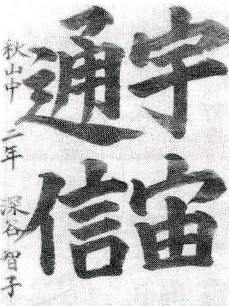 宇宙
通信
秋山中 二年 深谷智子